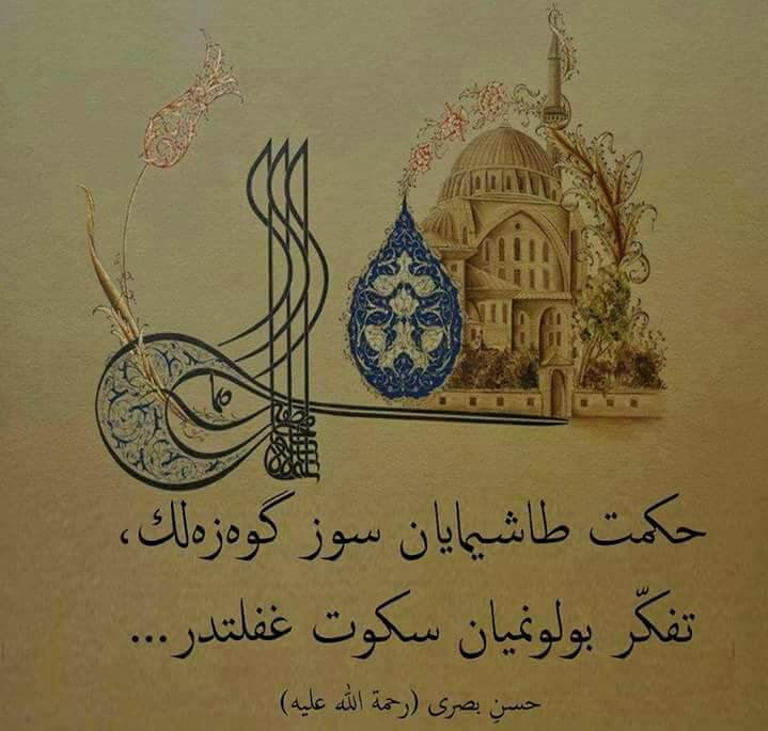 حكمت طاشیمایان سوز گوەزەلك،
تفكّر بولونمیان سكوت غفلتدر...
حسنِ بصری (رحمة الله علیه)